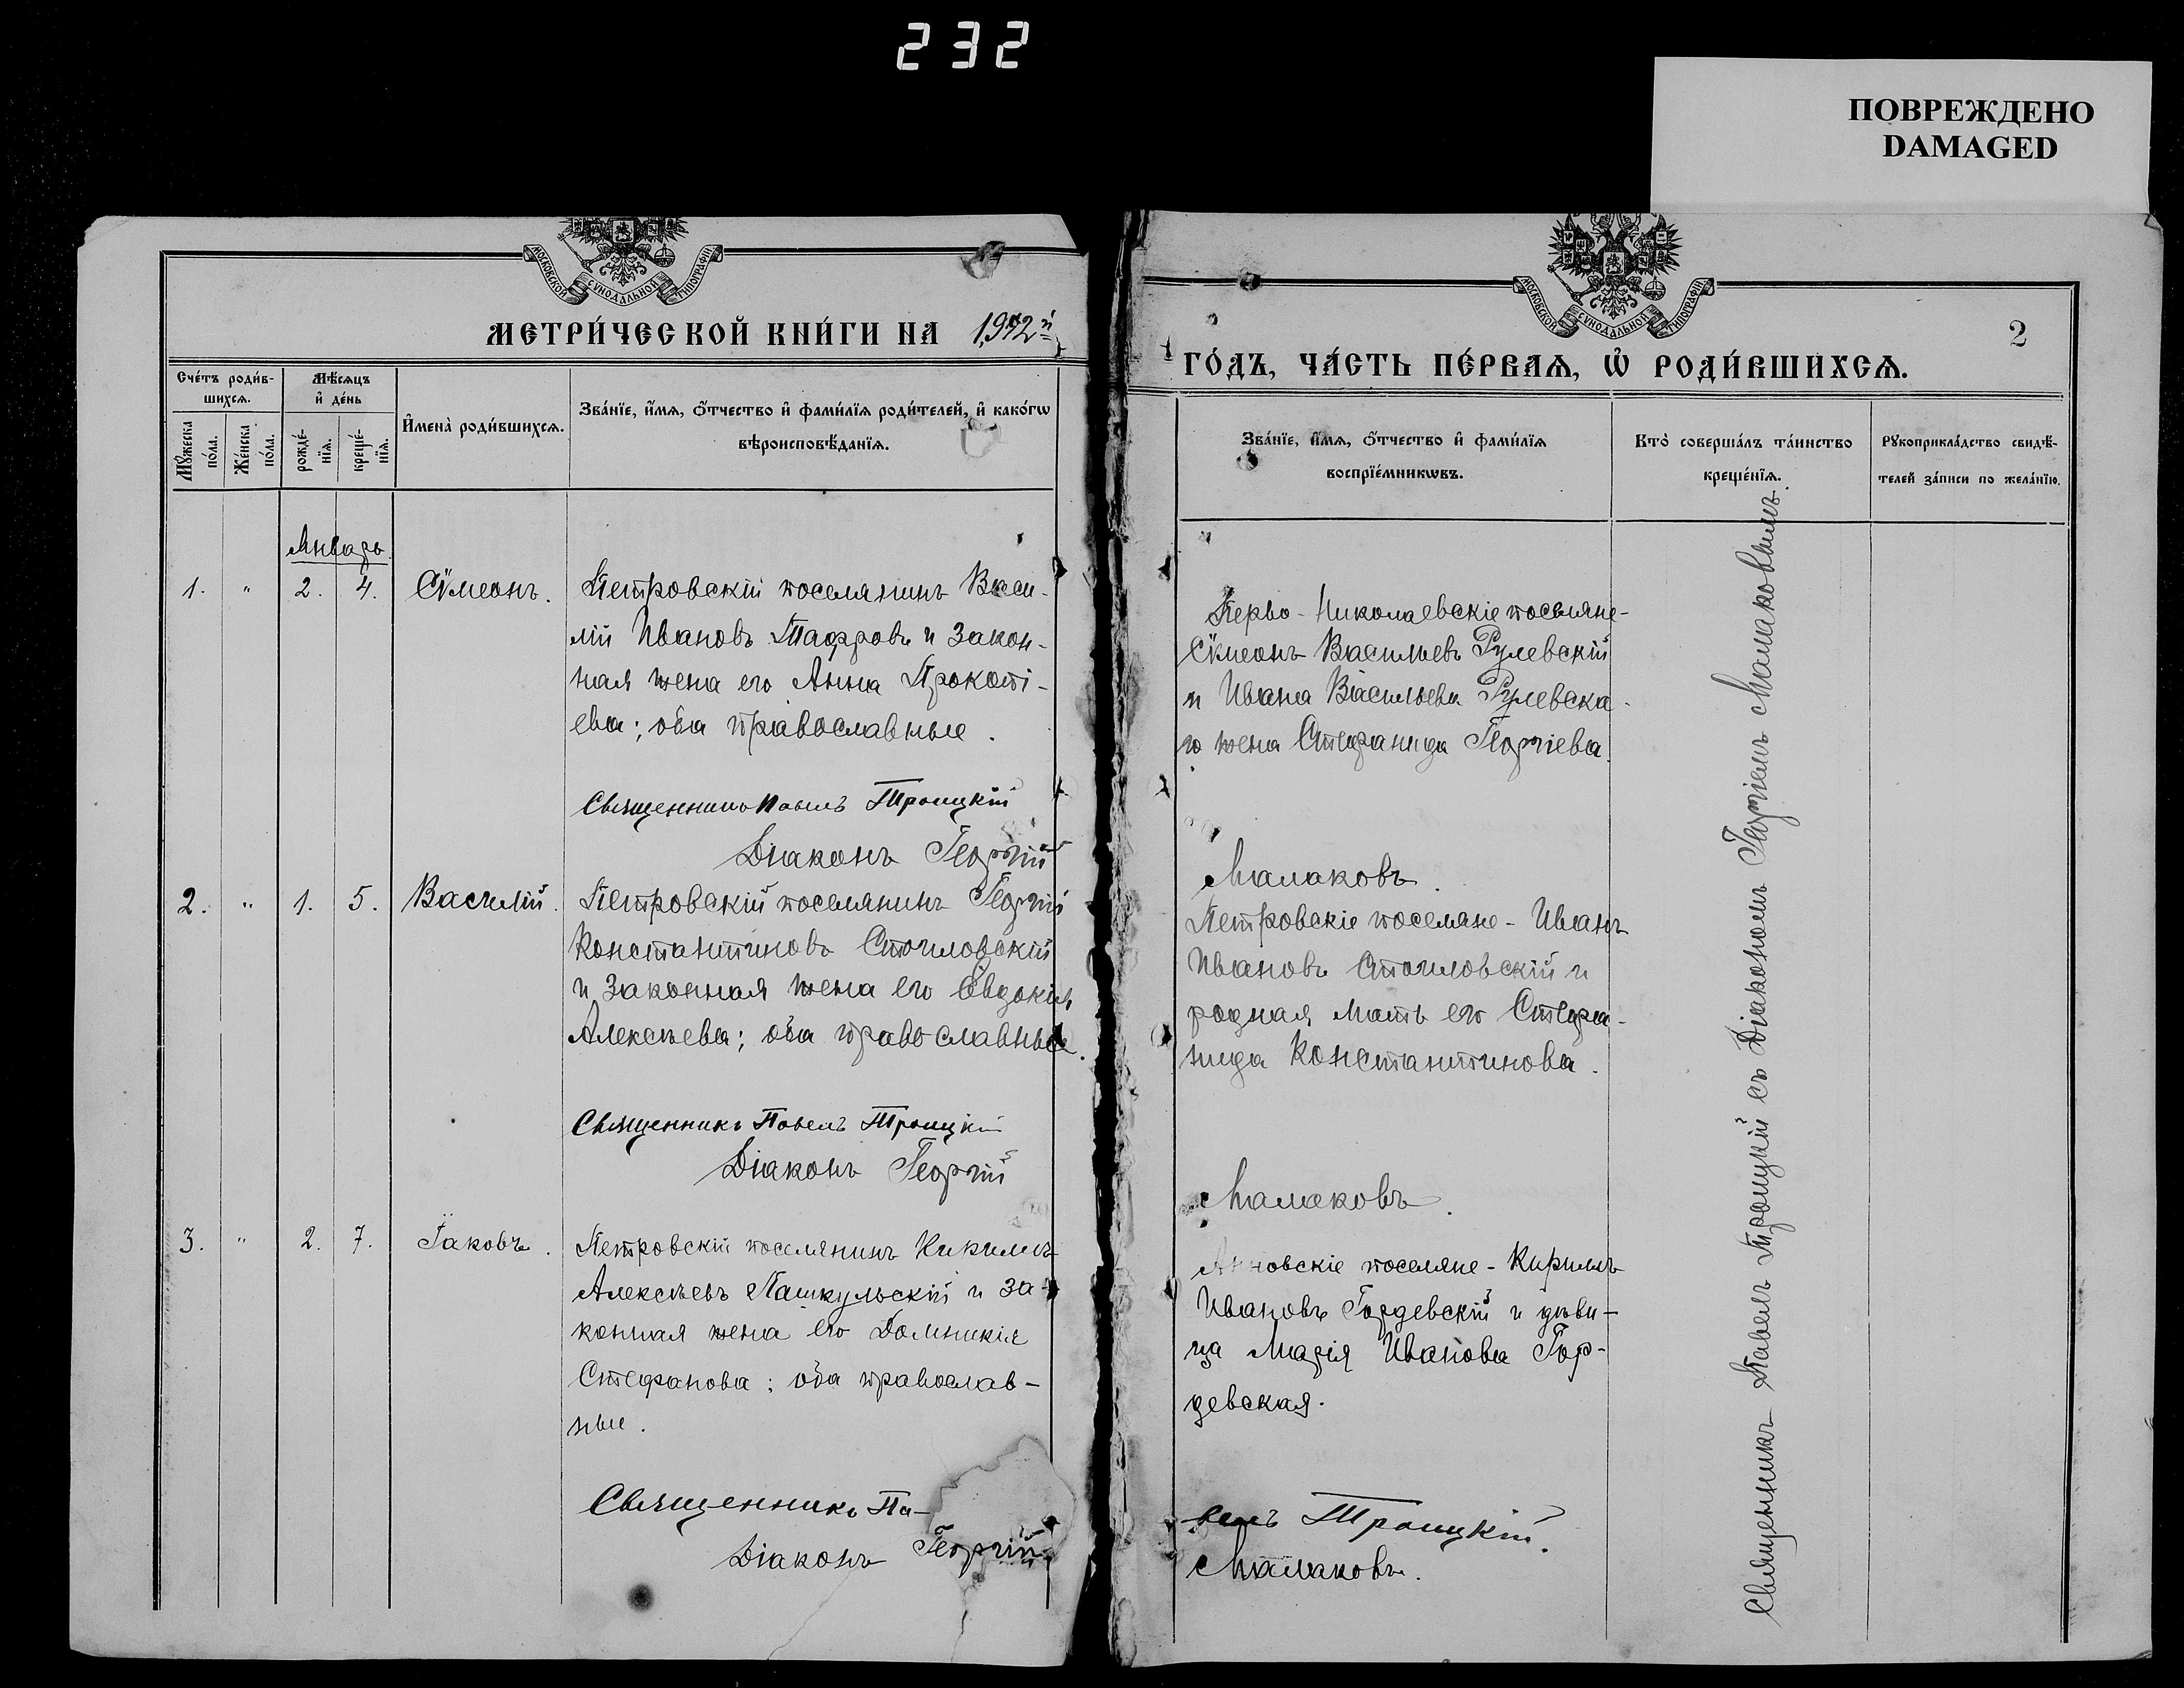 232
ПОВРЕЖДЕНО
DAMAGED
МОСКОВСКОЙ СѴНОДАЛЬНОЙ ТИПОГРАФІИ
МЕТРИ́ЧЕСКОЙ КНИ́ГИ НА 1912й
Сче́тъ роди́в-
шихсѧ.
Мѣ́сѧцъ
и҆ де́нь
Мꙋ́жеска
по́ла.
Же́нска
по́ла.
рожде́-
нїѧ.
креще́-
нїѧ.
И҆мена̀ роди́вшихсѧ.
Зва́нїе, и҆́мѧ, ѻ҆́тчество и҆ фами́лїѧ роди́телей, и҆ како́гѡ
вѣроисповѣ́данїѧ.
Январь.
1. " 2. 4. Сѵмеонъ.
Петровскій поселянинъ Васи-
лій Ивановъ и закон-
ная жена его Анна Прокопі-
ева; оба православные.
Священникъ Павелъ Троицкій
Діаконъ Георгій
2. " 1. 5. Василій.
Петровскій поселянинъ Георгій
Константиновъ Стоиловскій
и законная жена его Евдокія
Алексѣева; оба православные.
Священникъ Павелъ Троицкій
Діаконъ Георгій
3. " 2. 7. Іаковъ.
Петровскій поселянинъ Кириллъ
Алексѣевъ Пашкульскій и за-
конная жена его Домникія
Стефанова; оба православ-
ные.
Священникъ Па-
Діаконъ Георгій
МОСКОВСКОЙ СѴНОДАЛЬНОЙ ТИПОГРАФІИ
2
ГО́ДЪ, ЧА́СТЬ ПЕ́РВАѦ, Ѡ҆ РОДИ́ВШИХСѦ.
Зва́нїе, и҆́мѧ, ѻ҆́тчество и҆ фами́лїѧ
воспрїе́мникѡвъ.
Кто̀ соверша́лъ та́инство
креще́нїѧ.
Рꙋкоприкла́дство свидѣ́-
телей за́писи по жела́нїю.
Перво-Николаевскіе поселяне-
Сѵмеонъ Васильевъ Рулевскій
и Ивана Васильева Рулевска-
го жена Стефанида Георгіева.
Малаковъ.
Петровскіе поселяне - Иванъ
Ивановъ Стоиловскій и
родная мать его Стефа-
нида Константинова.
Малаковъ.
поселяне - Кириллъ
Ивановъ Гордевскій и дѣви-
ца Марія Иванова Гор-
девская.
велъ Троицкій.
Малаковъ.
Священникъ Павелъ Троицкій съ Діакономъ Георгіемъ Малаковымъ.